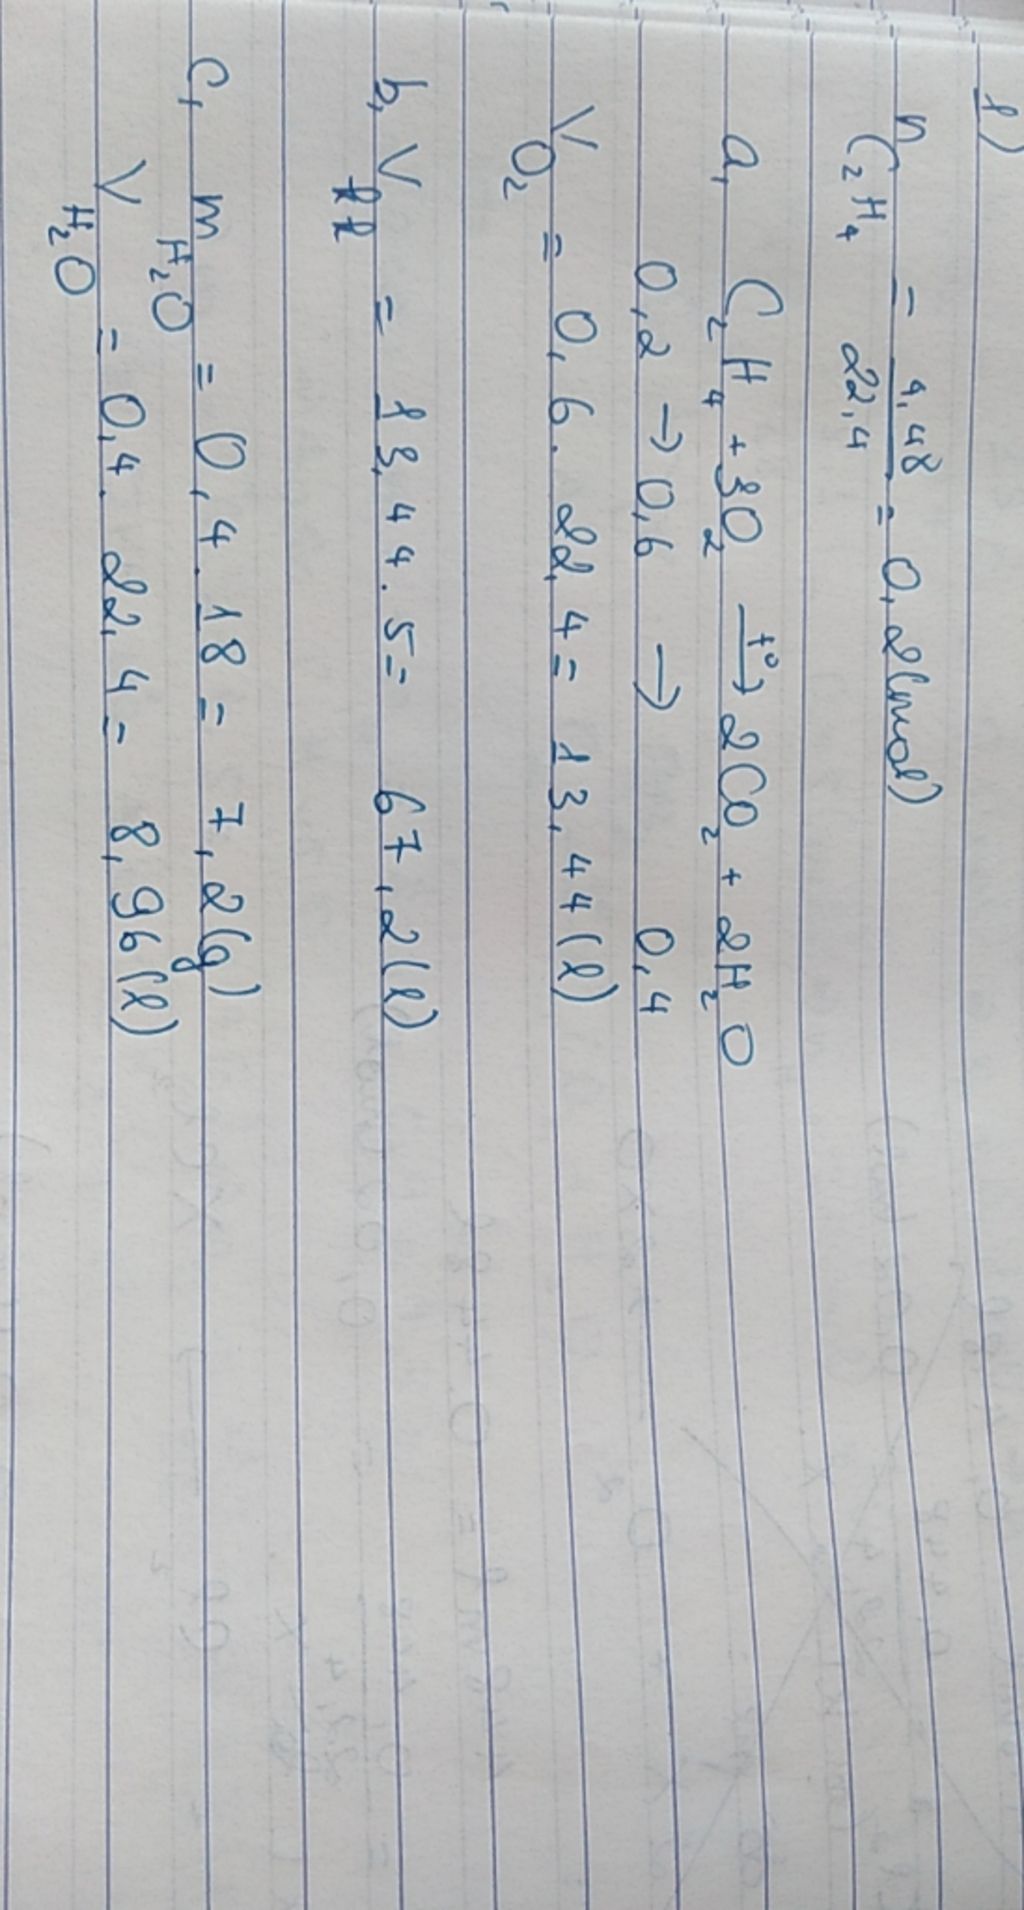 1)
n C₂H₄ = 4,48 / 22,4 = 0,2(mol)
a, C₂H₄ + 3O₂ →(t°) 2CO₂ + 2H₂O
0,2 → 0,6 → 0,4
V O₂ = 0,6 . 22,4 = 13,44(l)
b, V kk = 13,44 . 5 = 67,2(l)
c, m H₂O = 0,4 . 18 = 7,2(g)
V H₂O = 0,4 . 22,4 = 8,96(l)